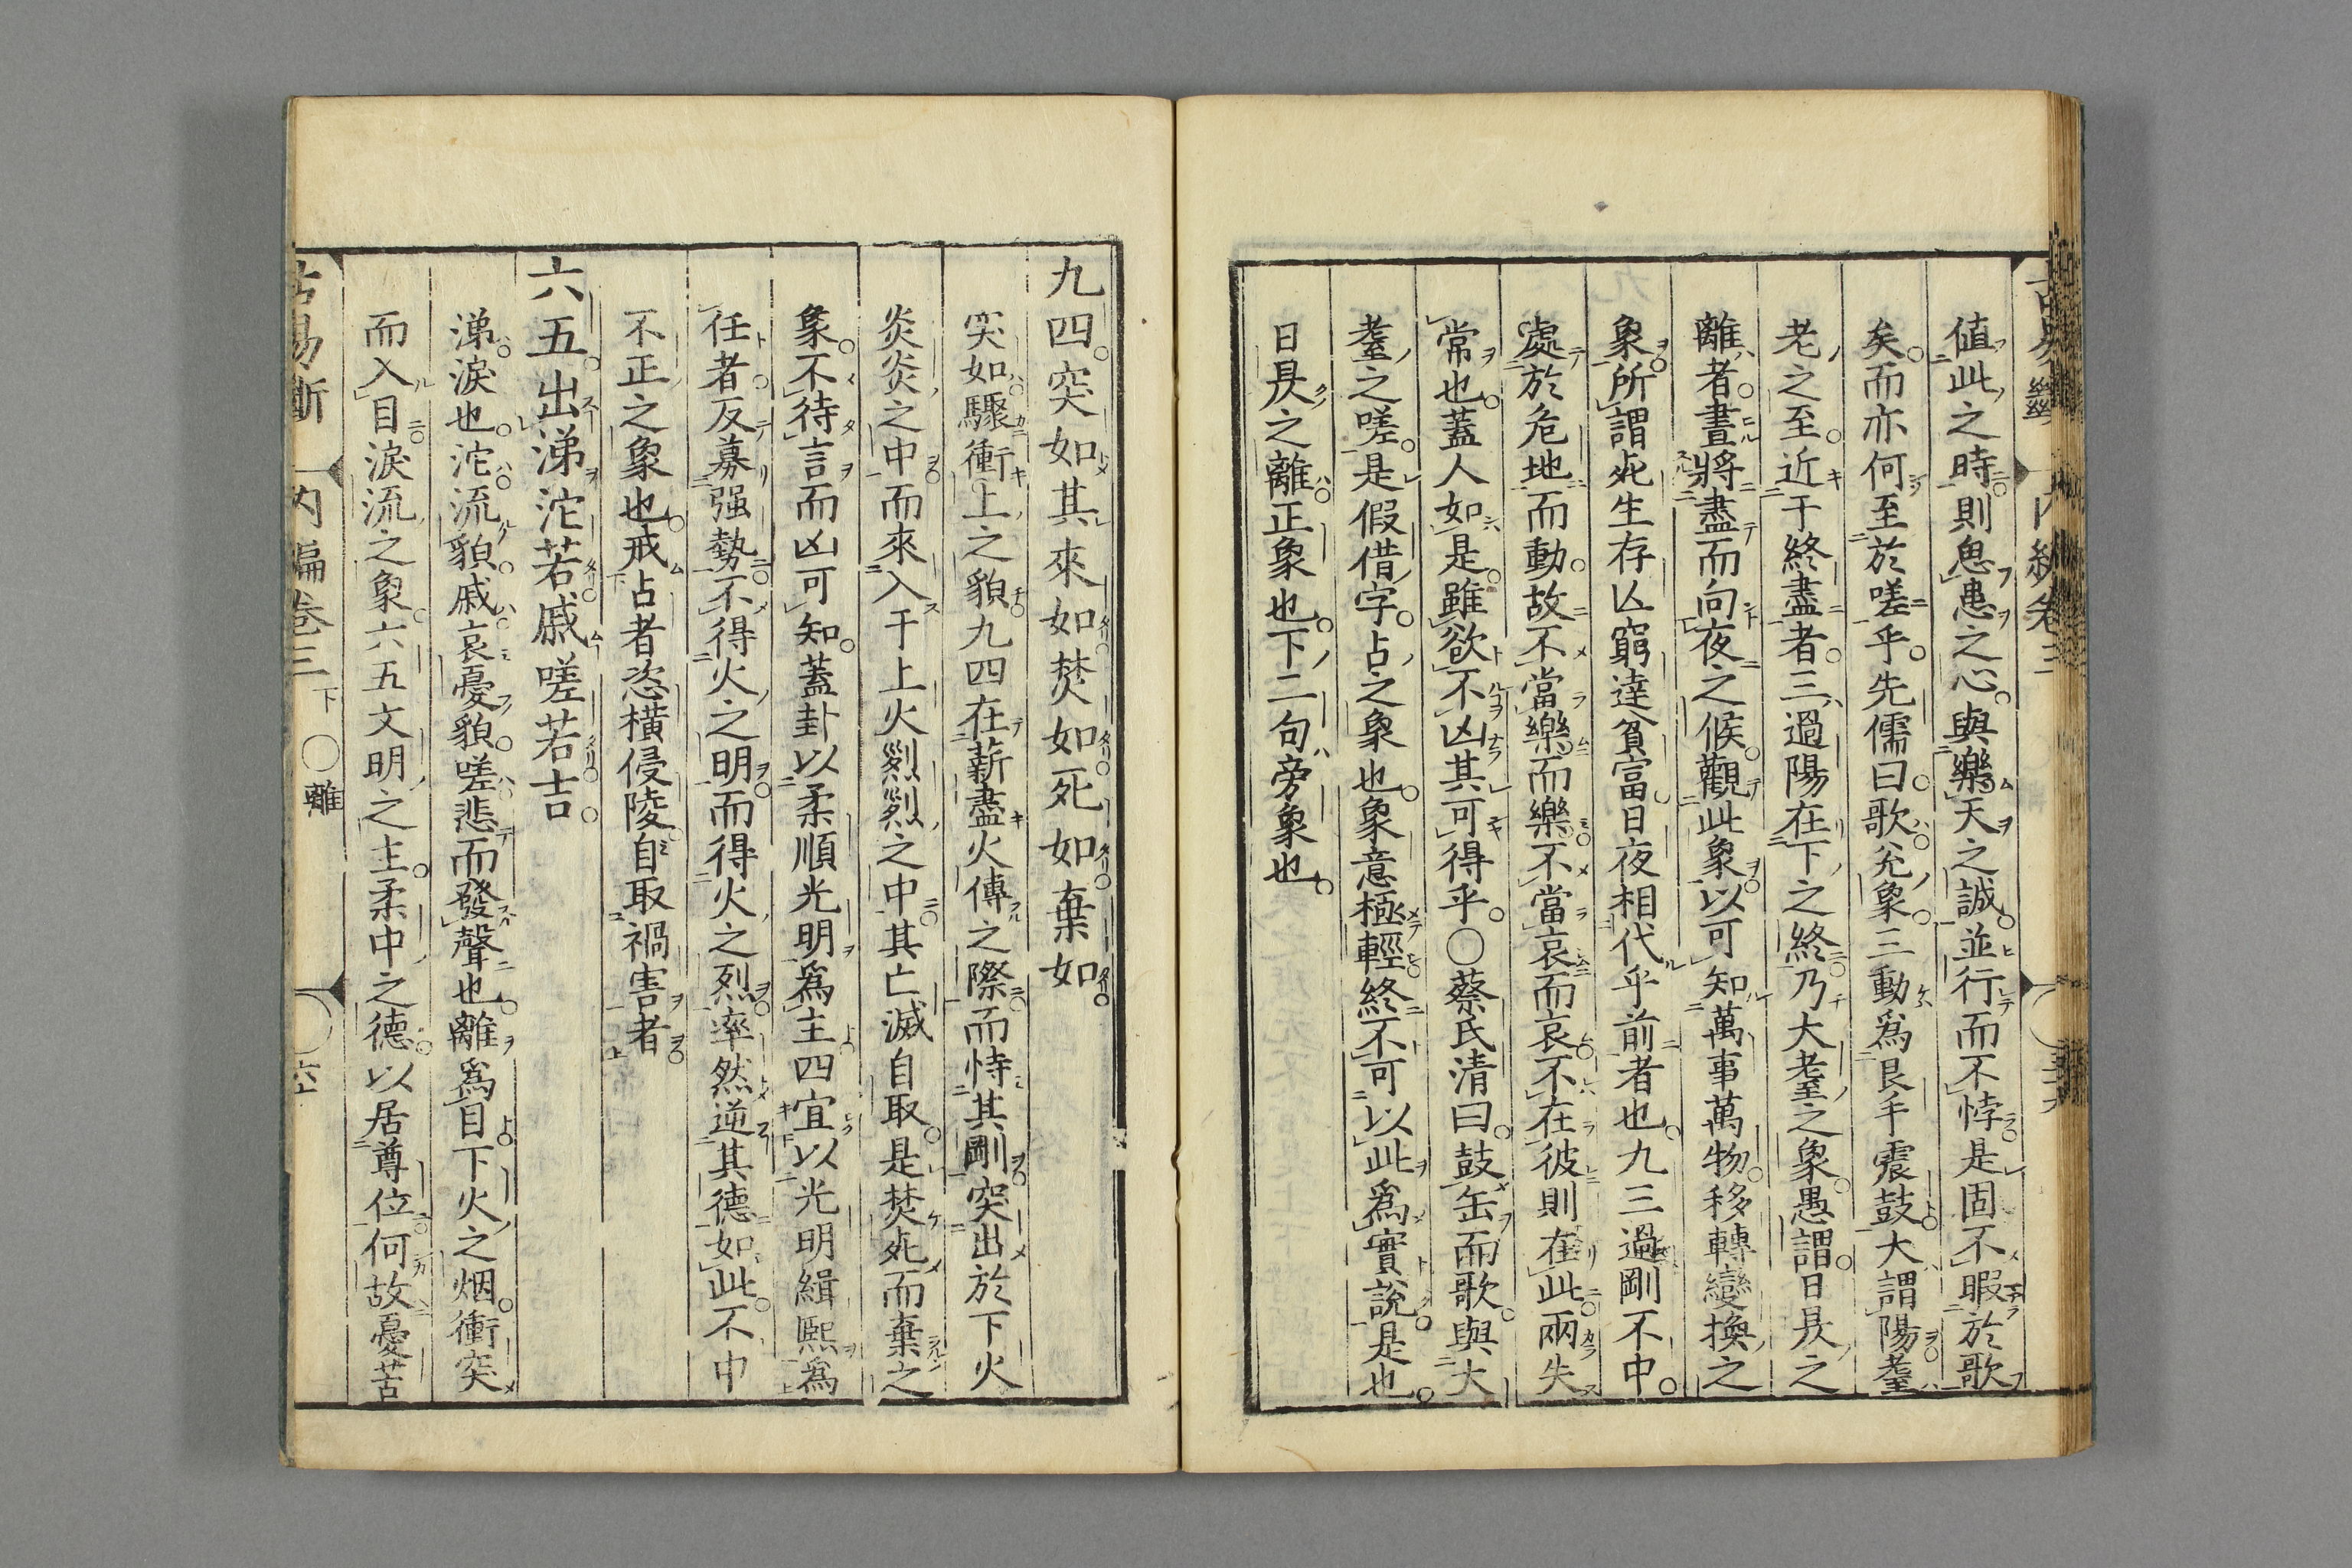 値此之時則思患之心與樂天之誠並行而不悖是固不暇於歌
矣而亦何至於嗟乎先儒曰歌兊象三動爲艮手震鼓大謂陽耋
老之至近于終盡者三過陽在下之終乃大耋之象愚謂日昃之
離者晝將盡而向夜之候觀此象以可知萬事萬物移轉變換之
象所謂死生存亾窮達貧富日夜相代乎前者也九三過剛不中
處於危地而動故不當樂而樂不當哀而哀不在彼則在此兩失
常也蓋人如是雖欲不凶其可得乎○蔡氏清曰鼓缶而歌與大
耋之嗟是假借字占之象也象意極輕終不可以此爲實說是也
日昃之離正象也下二句旁象也
九四突如其來如焚如死如棄如
突如驟衝上之貌九四在薪盡火傳之際而恃其剛突出於下火
炎炎之中而來入于上火烈烈之中其亡滅自取是焚死而棄之
象不待言而凶可知蓋卦以柔順光明爲主四宜以光明緝熙爲
任者反募强勢不得火之明而得火之烈率然逆其德如此不中
不正之象也戒占者恣橫侵陵自取禍害者
六五出涕沱若戚嗟若吉
涕淚也沱流貌戚哀憂貌嗟悲而發聲也離爲目下火之烟衝突
而入目淚流之象六五文明之主柔中之德以居尊位何故憂苦
古易斷 內編卷三下 ○離